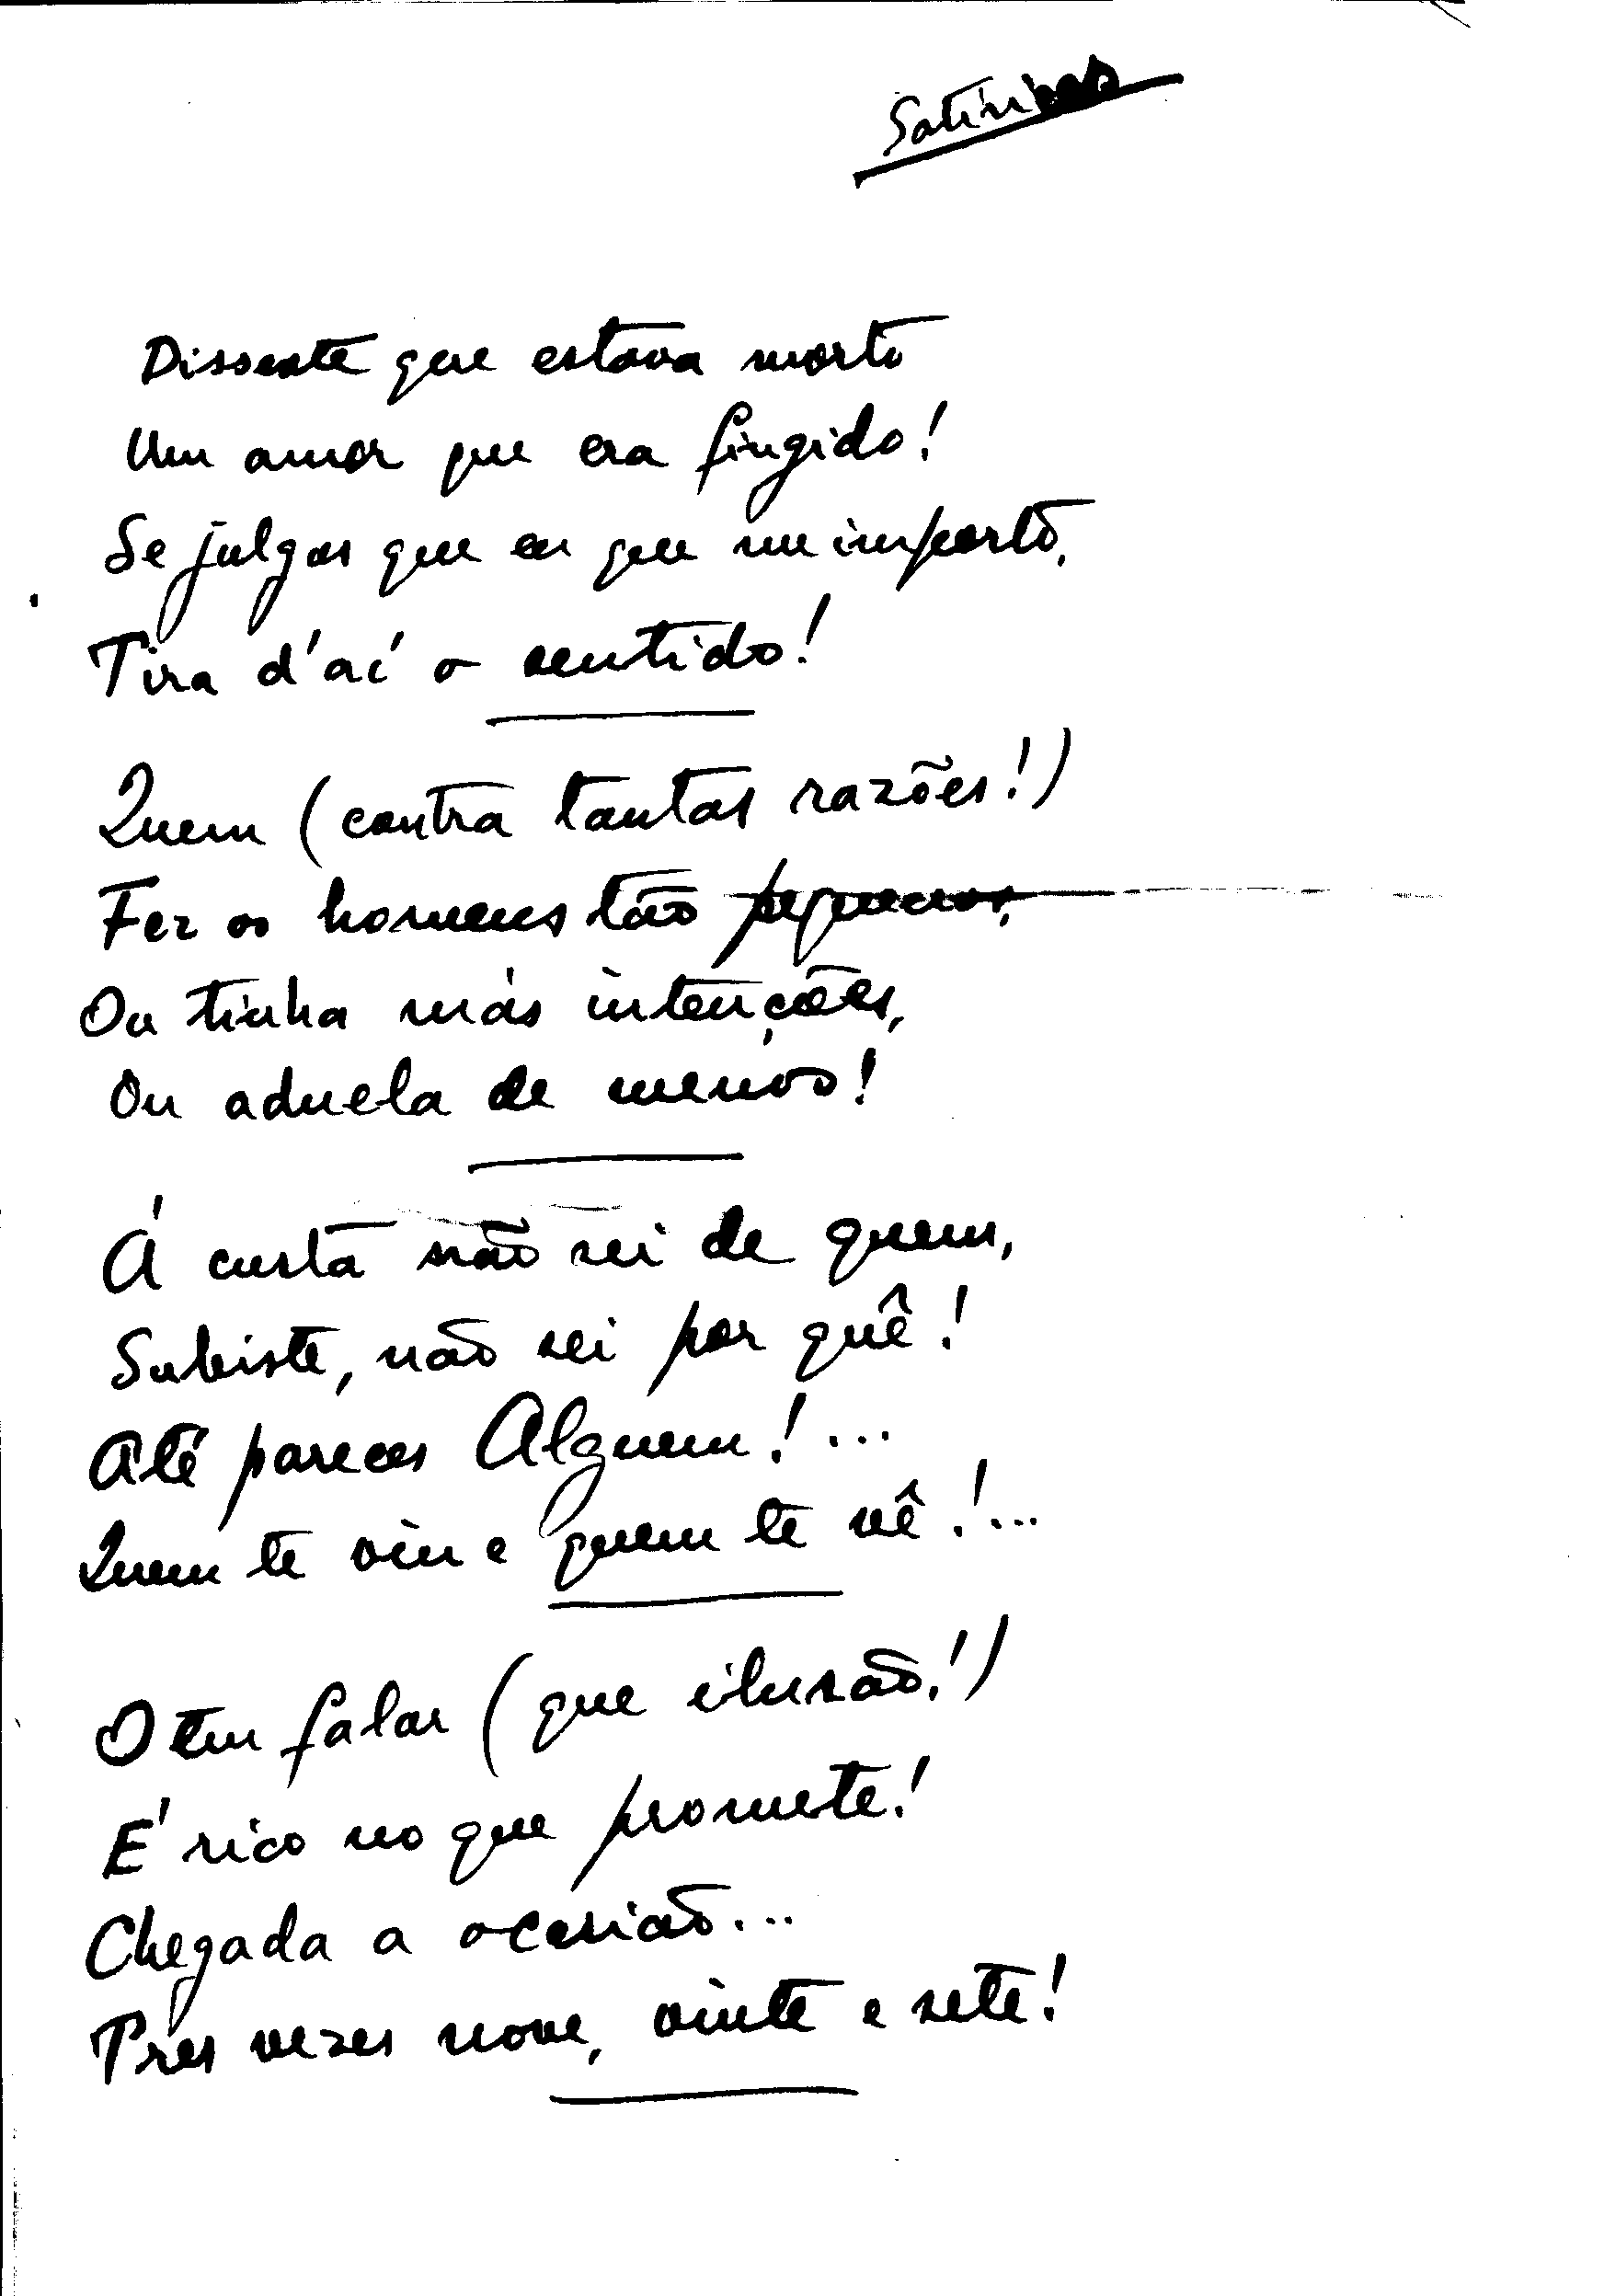 Satíricas
Disseste que estava morto
Um amor que era fingido!
Se julgas que eu que me importo,
Tira d'aí o sentido!
Quem (contra tantas razões!)
Fez os homens tão pequenos,
Ou tinha más intenções,
Ou aduela de menos!
Á custa não sei de quem,
Subiste, não sei por quê!
Até pareces Alguem!...
Quem te viu e quem te vê!...
O tem falar (que ilusão!)
É rico no que promete!
Chegada a ocasião...
Tres vezes nove, vinte e sete!